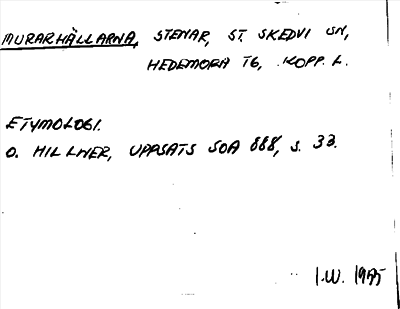 MURARHÄLLARNA, STENAR, ST. SKEDVI SN,
HEDEMORA TG, KOPP. L.
ETYMOLOGI.
O. HILLNER, UPPSATS SOA 888, S. 33.
I.W. 1975